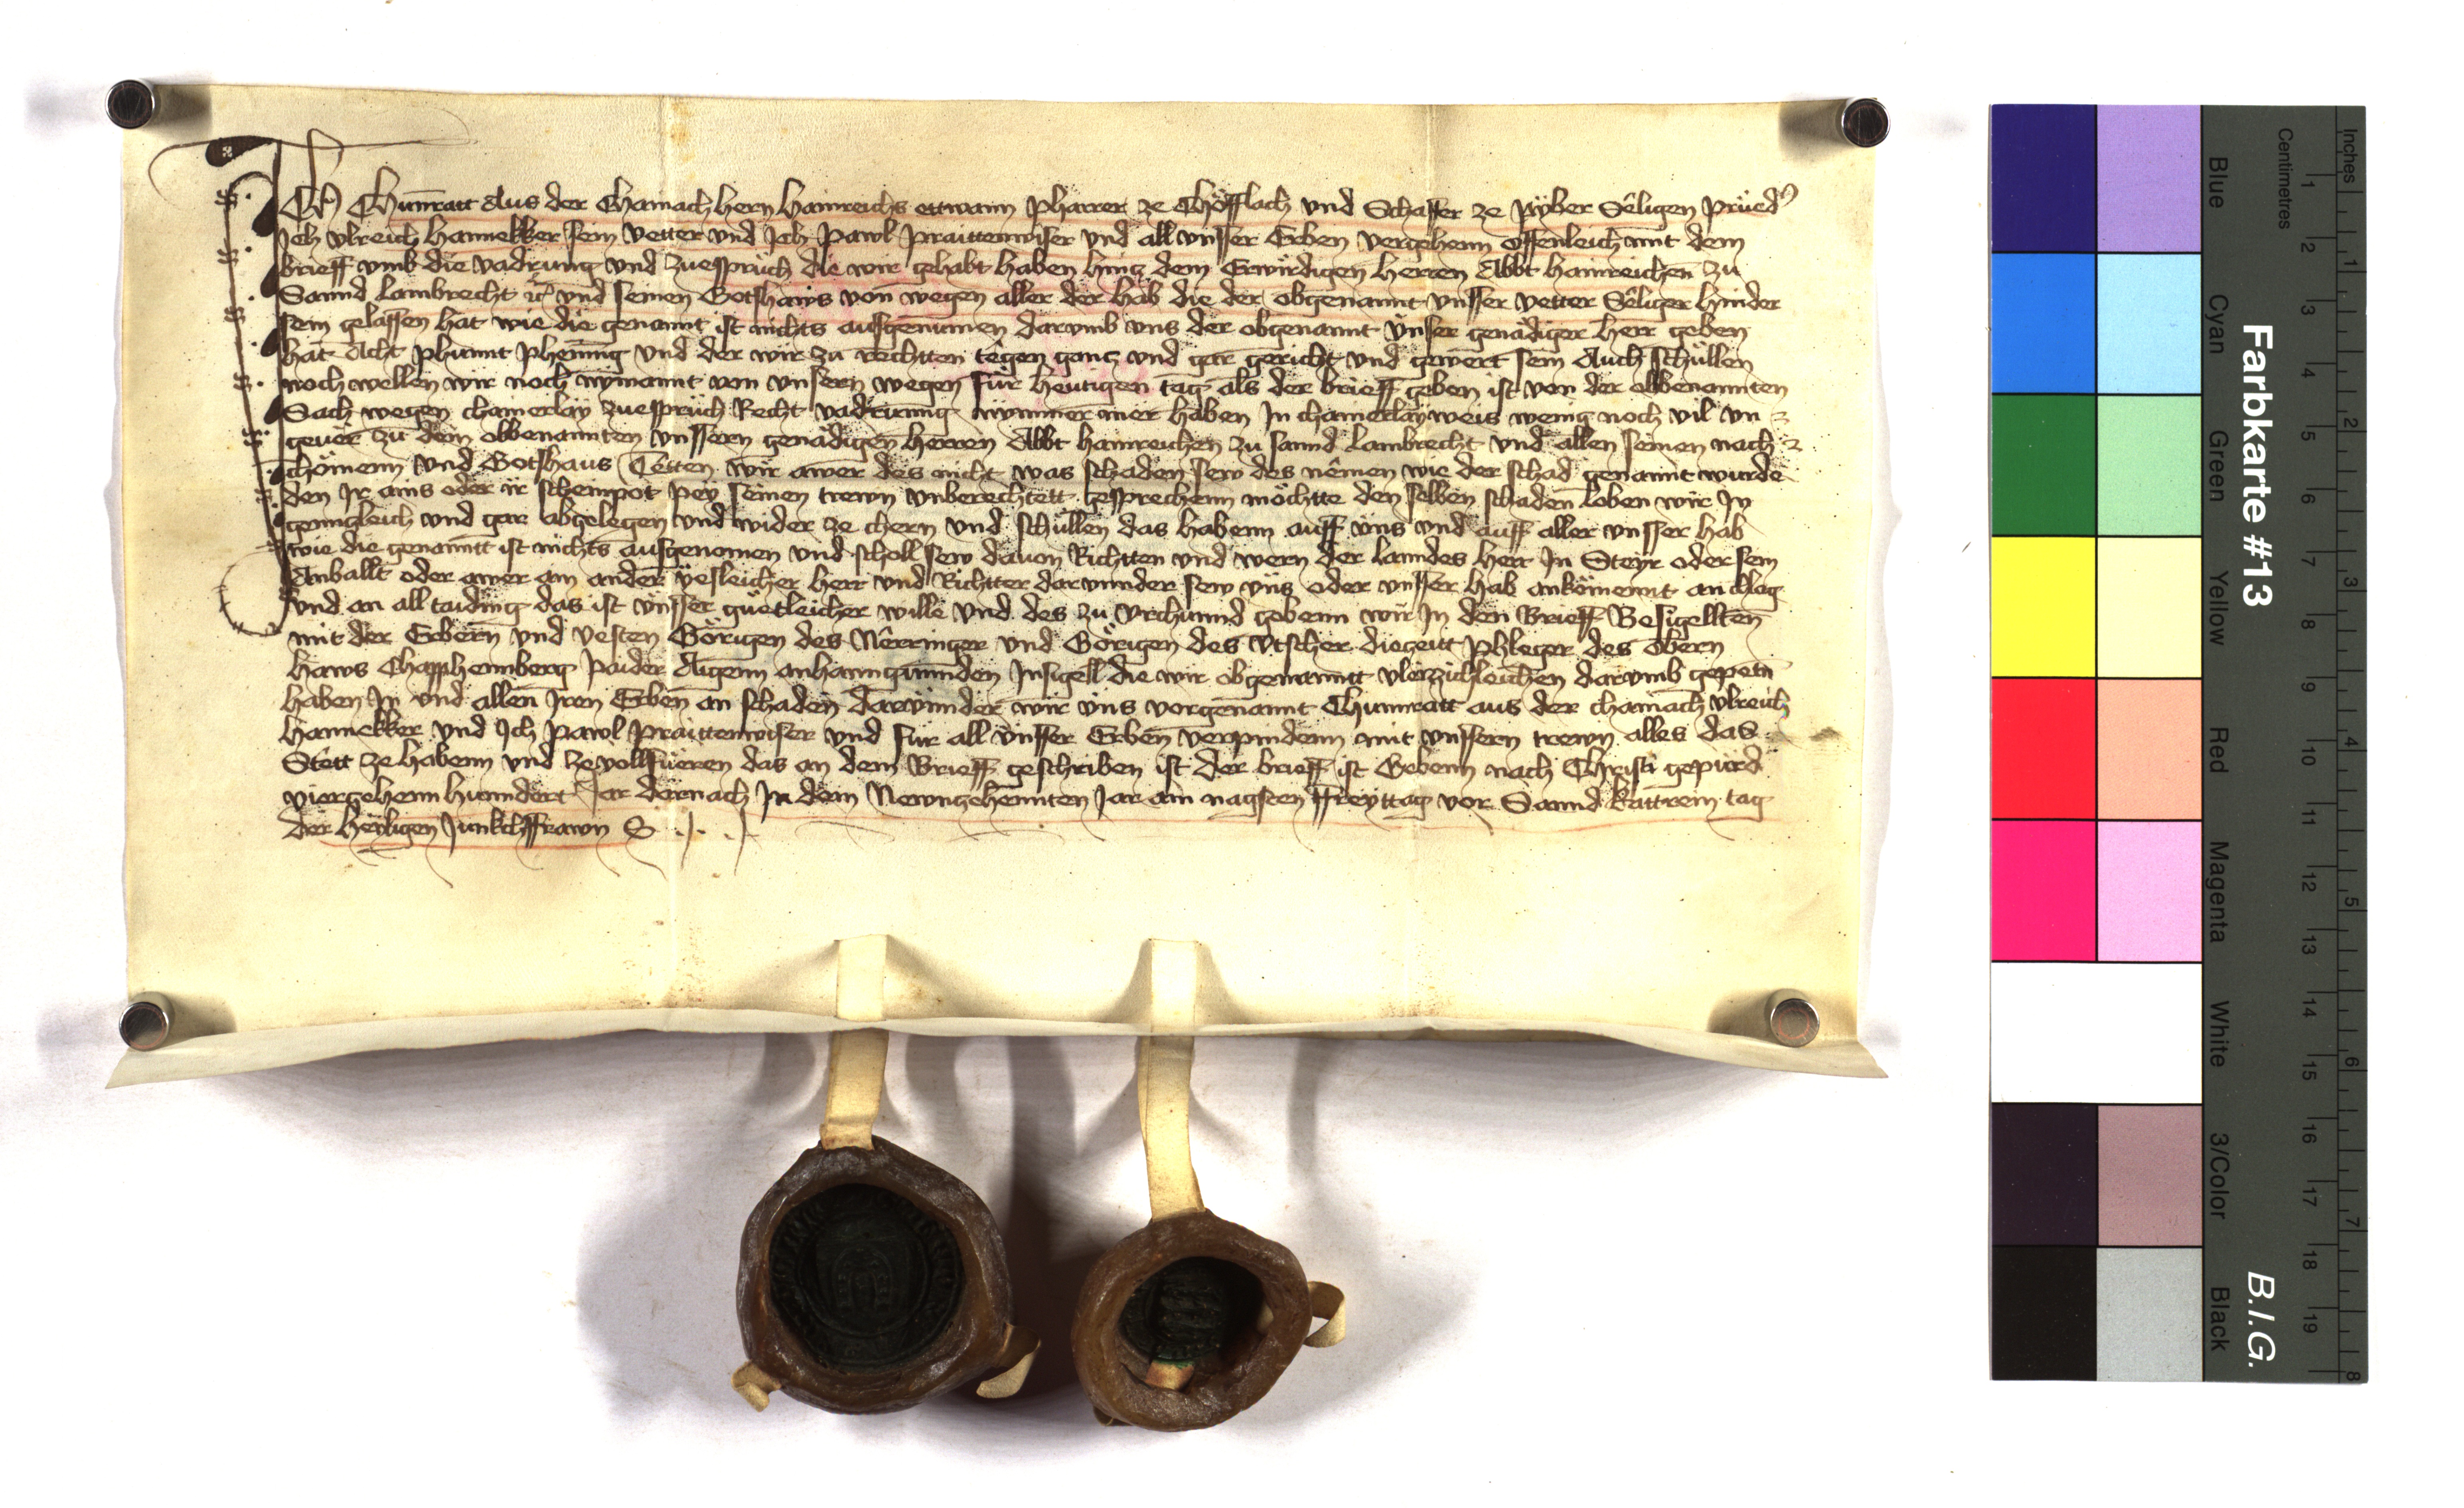 ICh Chunratt Aus der Chainach hern hainreichs ettwann Pharrer ze Chöfflach und Schaffer ze Pyber Sêligen Prued
Ich Vlreich hannekker sein vetter und Ich Pawl Praittenwiser und all vnsser Erben vergehenn offenleich mit dem
brieff vmb die vadrung und zuesprüch die wir gehabt haben hincz dem Erwirdigen herren Abbt hainreichen zu
Sannd Lambrecht und seinen Gotshaws von wegen aller der hab die der obgenannt vnsser vetter Sêliger hinder
sein gelassen hat wie die genannt ist nichts ausgenumen darumb vns der obgenannt vnser genädiger herr geben
hat Acht Phunnt Phening und der wir zu rechtten tegen gancz und gar gericht und gewert sein Auch schüllen
noch wellen wir noch nymannt von vnsern wegen für heutigen tag als der brieff geben ist von der obbenannten
Sach wegen chainerlay zuesprüch Recht vadrunng nymmer mer haben In chainerlay weis wenig noch vil vn
geuer zu dem obbenannten vnssern genädigen herren Abbt hainreichen zu sannd Lambrecht und allen seinen nach
chömenn und Gotshaus Tetten wir awer des nicht was schaden sew des nêmen wie der schad genannt wurde
den Ir ains oder ir scheinpot pey seinen trewn vnberechtett gesprechenn möchtte den selben schaden loben wir In
gennczleich und gar abgelegen und wider ze chern und schüllen das habenn auff vns und auff aller vnsser hab
wie die genanntt ist nichts ausgenomen und scholl sew dauon Richtten und wern der lanndes herr In Steyr oder sein
Anballt oder awer ain ander yesleicher herr und Richtter darvunder sew vns oder vnsser hab ankömennt an chlag
und an all taiding das ist vnsser güetleicher wille und des zu vrchunnd gebenn wir In den Brieff Besigellten
mit der Erbern und vesten Görigen des Nêrringer und Görigen des Vtscher dieczeitt Phleger des obern
haws Chapphennberg Paider Aigenn anhanngunnden Insigell die wir obgenanntt vleizzichleichen darumb gepetn
haben In und allen Iren Erben an schaden darvünder wir vns vorgenannt Chunnratt aus der chainach vlreich
hannekker und Ich Pawl Praittenwiser und für all vnsser Erben verpindenn mit vnssern trewn alles das
Stett ze habenn und ze vollfüeren das an dem Brieff geschriben ist der brieff ist Gebenn nach Christi gepurd
vierczehenn hunndert Jar dernach In dem Newnczehennten Jar am nagsten ffreyttag vor Sannd kattrein tag
der heyligen Junkchffrawn
Farbkarte #13
B.I.G.
Inches
Centimetres
1 2 3 4 5 6 7 8
1 2 3 4 5 6 7 8 9 10 11 12 13 14 15 16 17 18 19
Blue
Cyan
Green
Yellow
Red
Magenta
White
3/Color
Black